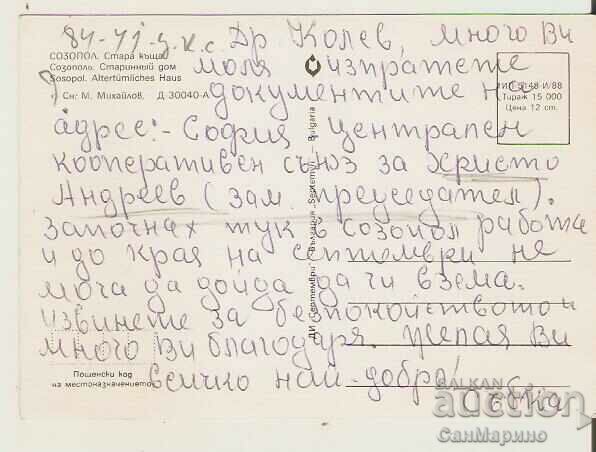 84-41-з.к.с. Др Колев, много Ви
моля изпратете
документите на
адрес:- София Централен
кооперативен съюз за Христо
Андреев (зам. председател).
Започнах тук в созопол работа
и до края на септември не
мога да дойда да ги взема.
извинете за безпокойството и
много Ви благодаря. Желая Ви
всичко най-добро!
Събка
СОЗОПОЛ. Стара къща
Созополь. Старинный дом
Sosopol. Altertümliches Haus
Сн: М. Михайлов, Д 30040-А
ДИ „Септември“ България „Septemvri“ — Bulgaria
Тираж 15 000
Цена 12 ст.
Пощенски код
на местоназначението
BALKAN
auction
СанМарино